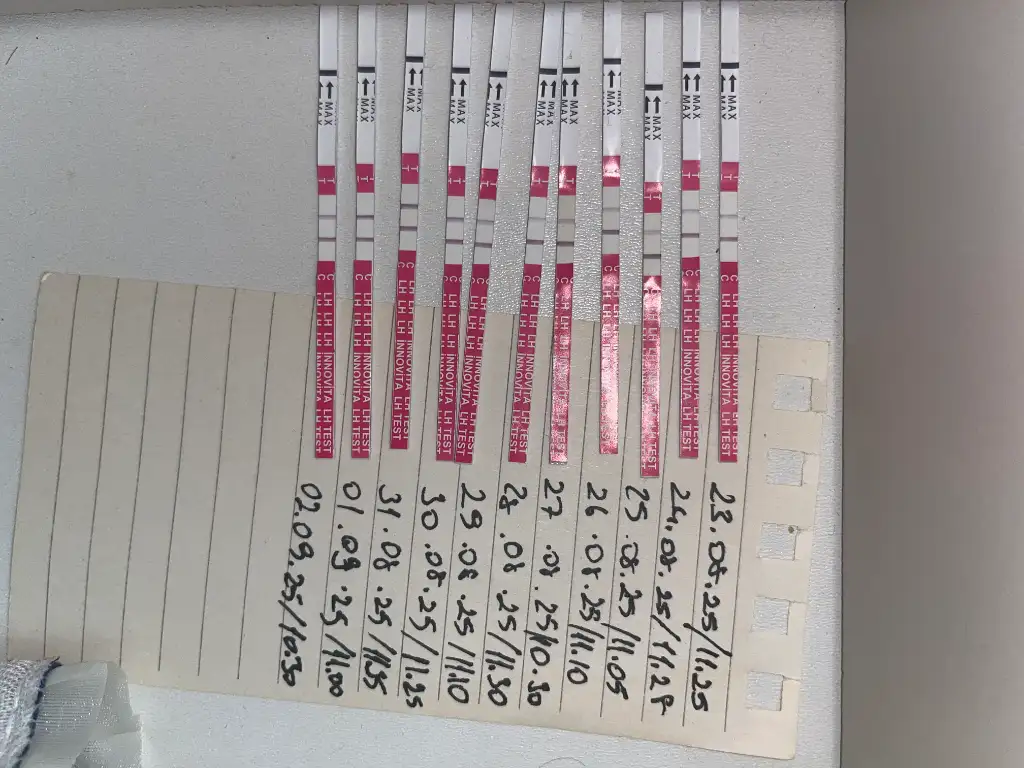 MAX T C LH LH LH INNOVITA LH TEST 23.08.25/11.25
MAX T C LH LH LH INNOVITA LH TEST 24.08.25/11.28
MAX T LH TEST 25.08.25/11.05
MAX T C LH 26.08.25/11.10
MAX T C LH LH LH INNOVITA LH TEST 27.08.25/10.30
MAX T C LH LH LH INNOVITA LH TEST 28.08.25/11.30
MAX T C LH LH LH INNOVITA LH TEST 29.08.25/11.10
MAX T C LH LH LH INNOVITA LH TEST 30.08.25/11.25
MAX T C LH LH LH INNOVITA LH TEST 31.08.25/11.35
MAX T C LH LH LH INNOVITA LH TEST 01.09.25/11.00
MAX T C LH LH LH INNOVITA LH TEST 02.09.25/10.30